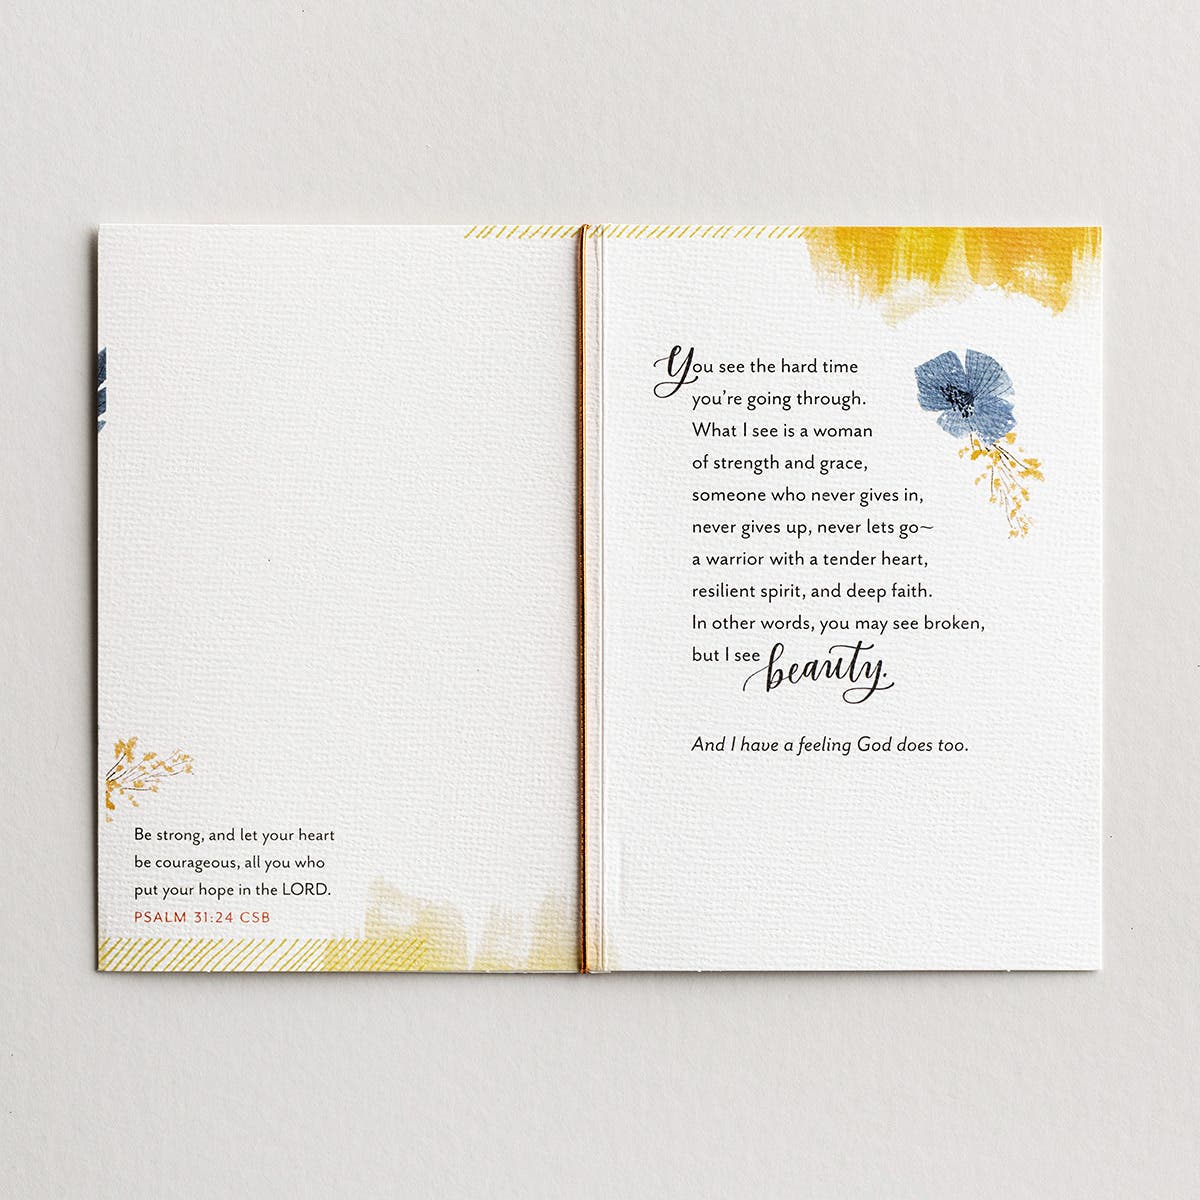 Be strong, and let your heart
be courageous, all you who
put your hope in the LORD.
PSALM 31:24 CSB
You see the hard time
you’re going through.
What I see is a woman
of strength and grace,
someone who never gives in,
never gives up, never lets go~
a warrior with a tender heart,
resilient spirit, and deep faith.
In other words, you may see broken,
but I see beauty.
And I have a feeling God does too.